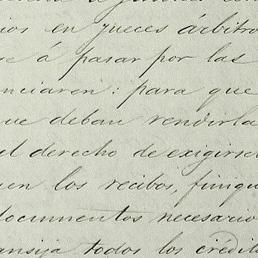 ios en jueces árbitro
re á pasar por las
nciaren: para que
ue deban rendirla
el derecho de exigirse
uen los recibos, finiqu
documentos necesario
ansija todos los crédit